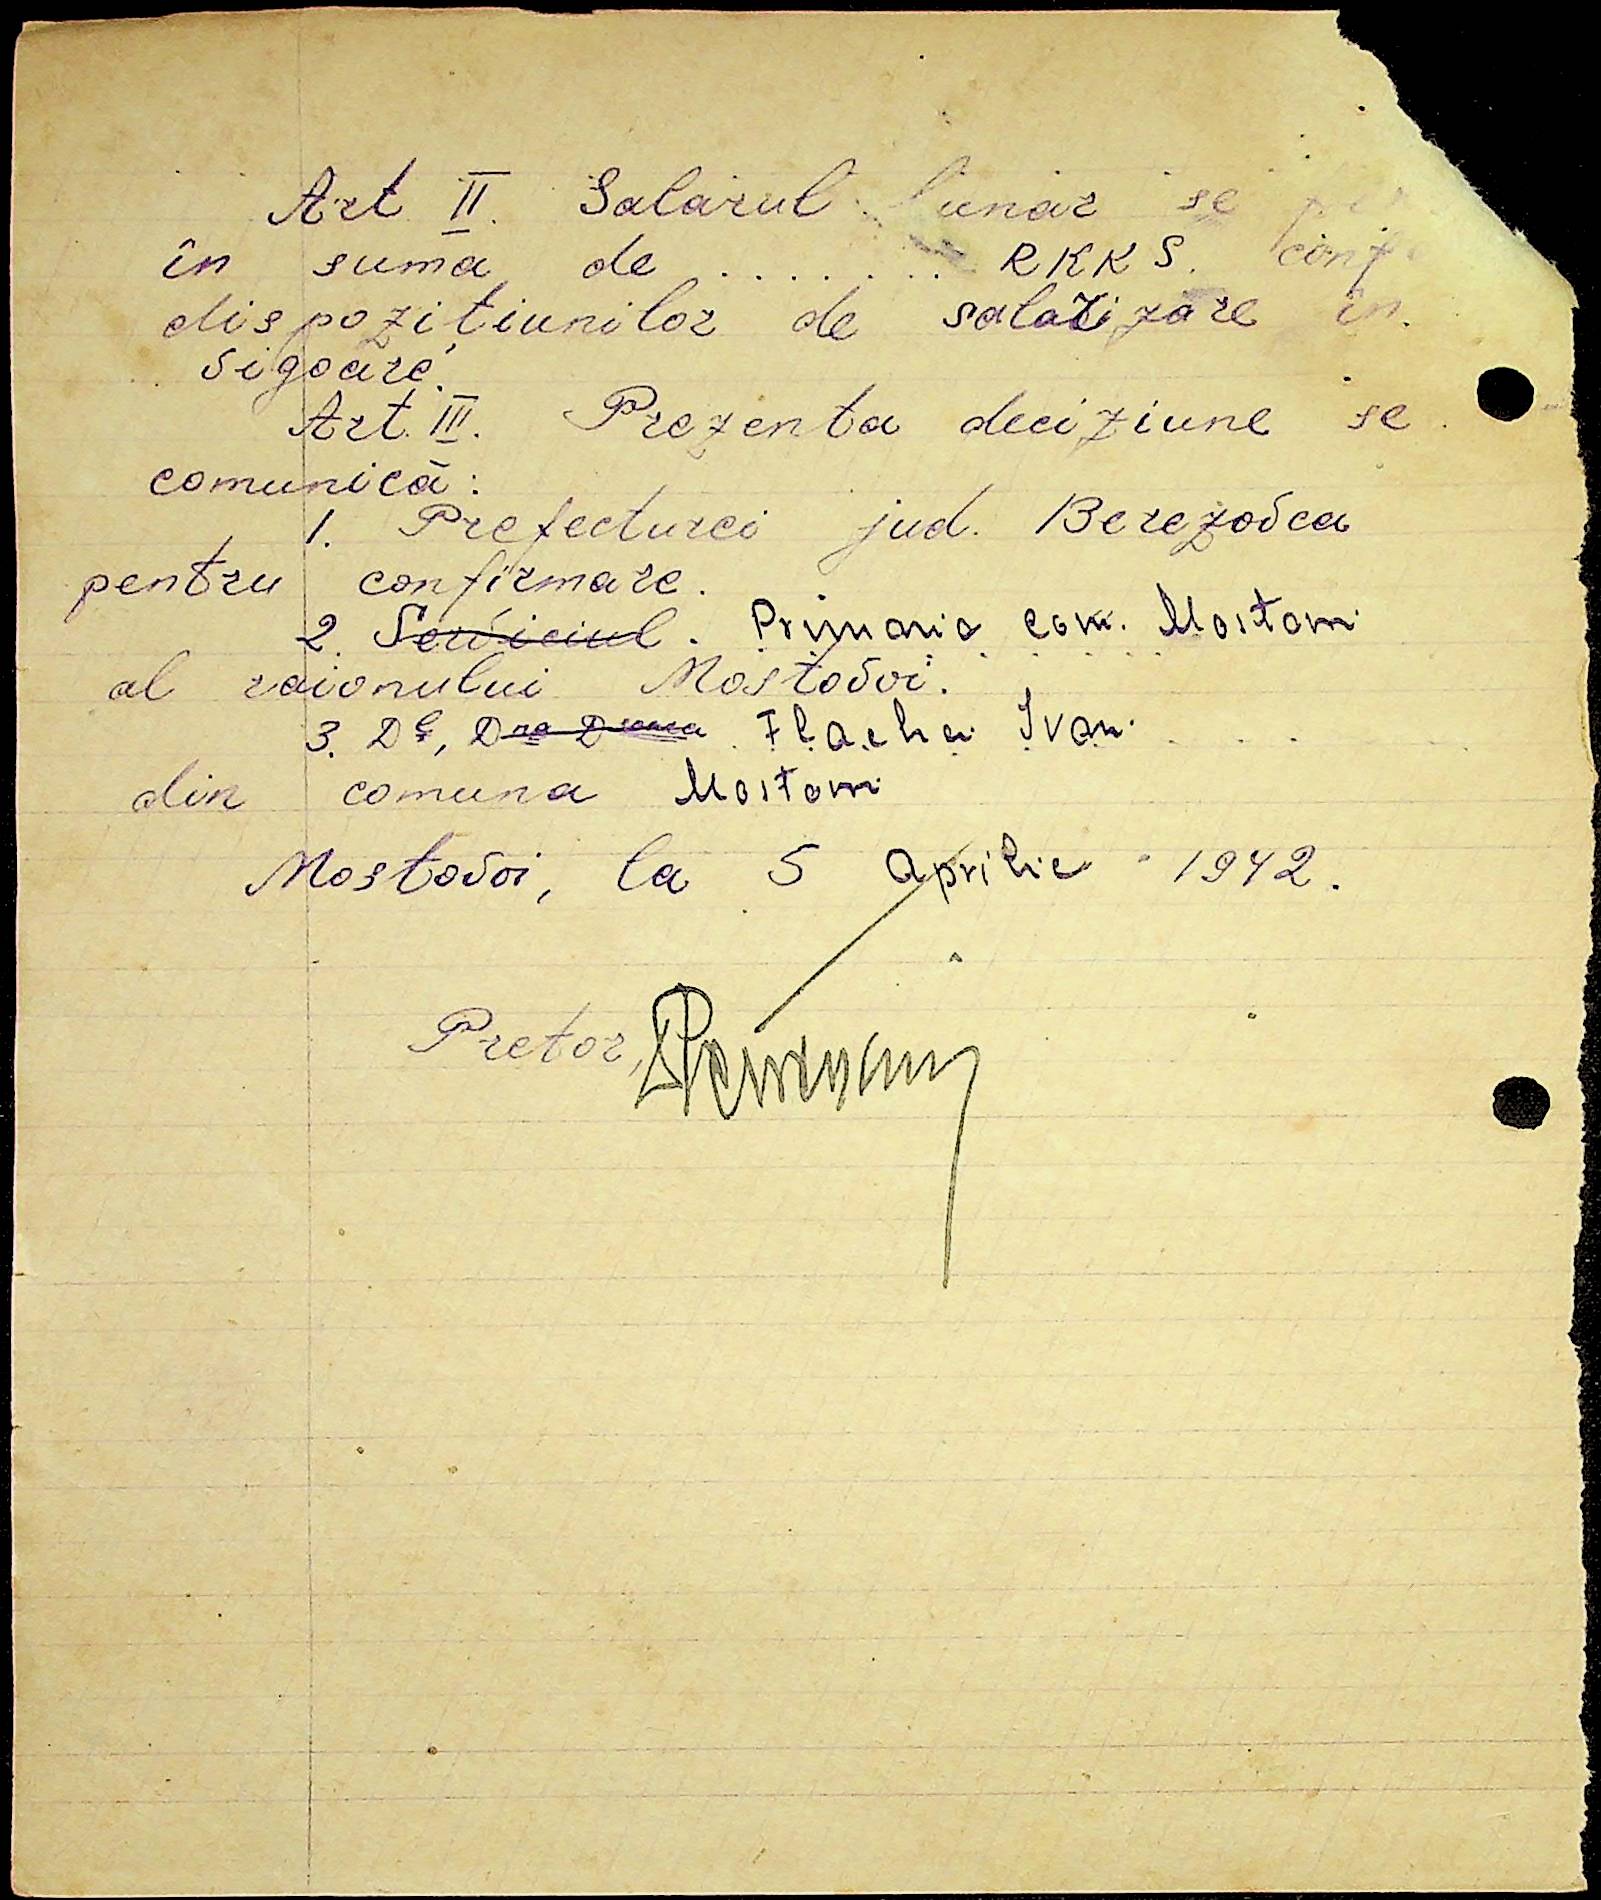 Art II. Salarul lunar se
în suma de ........ RKKS. conf
dispozitiunilor de salarizare în
vigoare.
Art. III. Prezenta deciziune se
comunică:
1. Prefecturei jud. Berezovca
pentru confirmare.
2. Serviciul. Primaria com. Mostovoi
al raionului Mostovoi.
3. Dl, Dna Dșoara Flacha Ivan
din comuna Mostovoi
Mostovoi, la 5 Aprilie 1942.
Pretor,